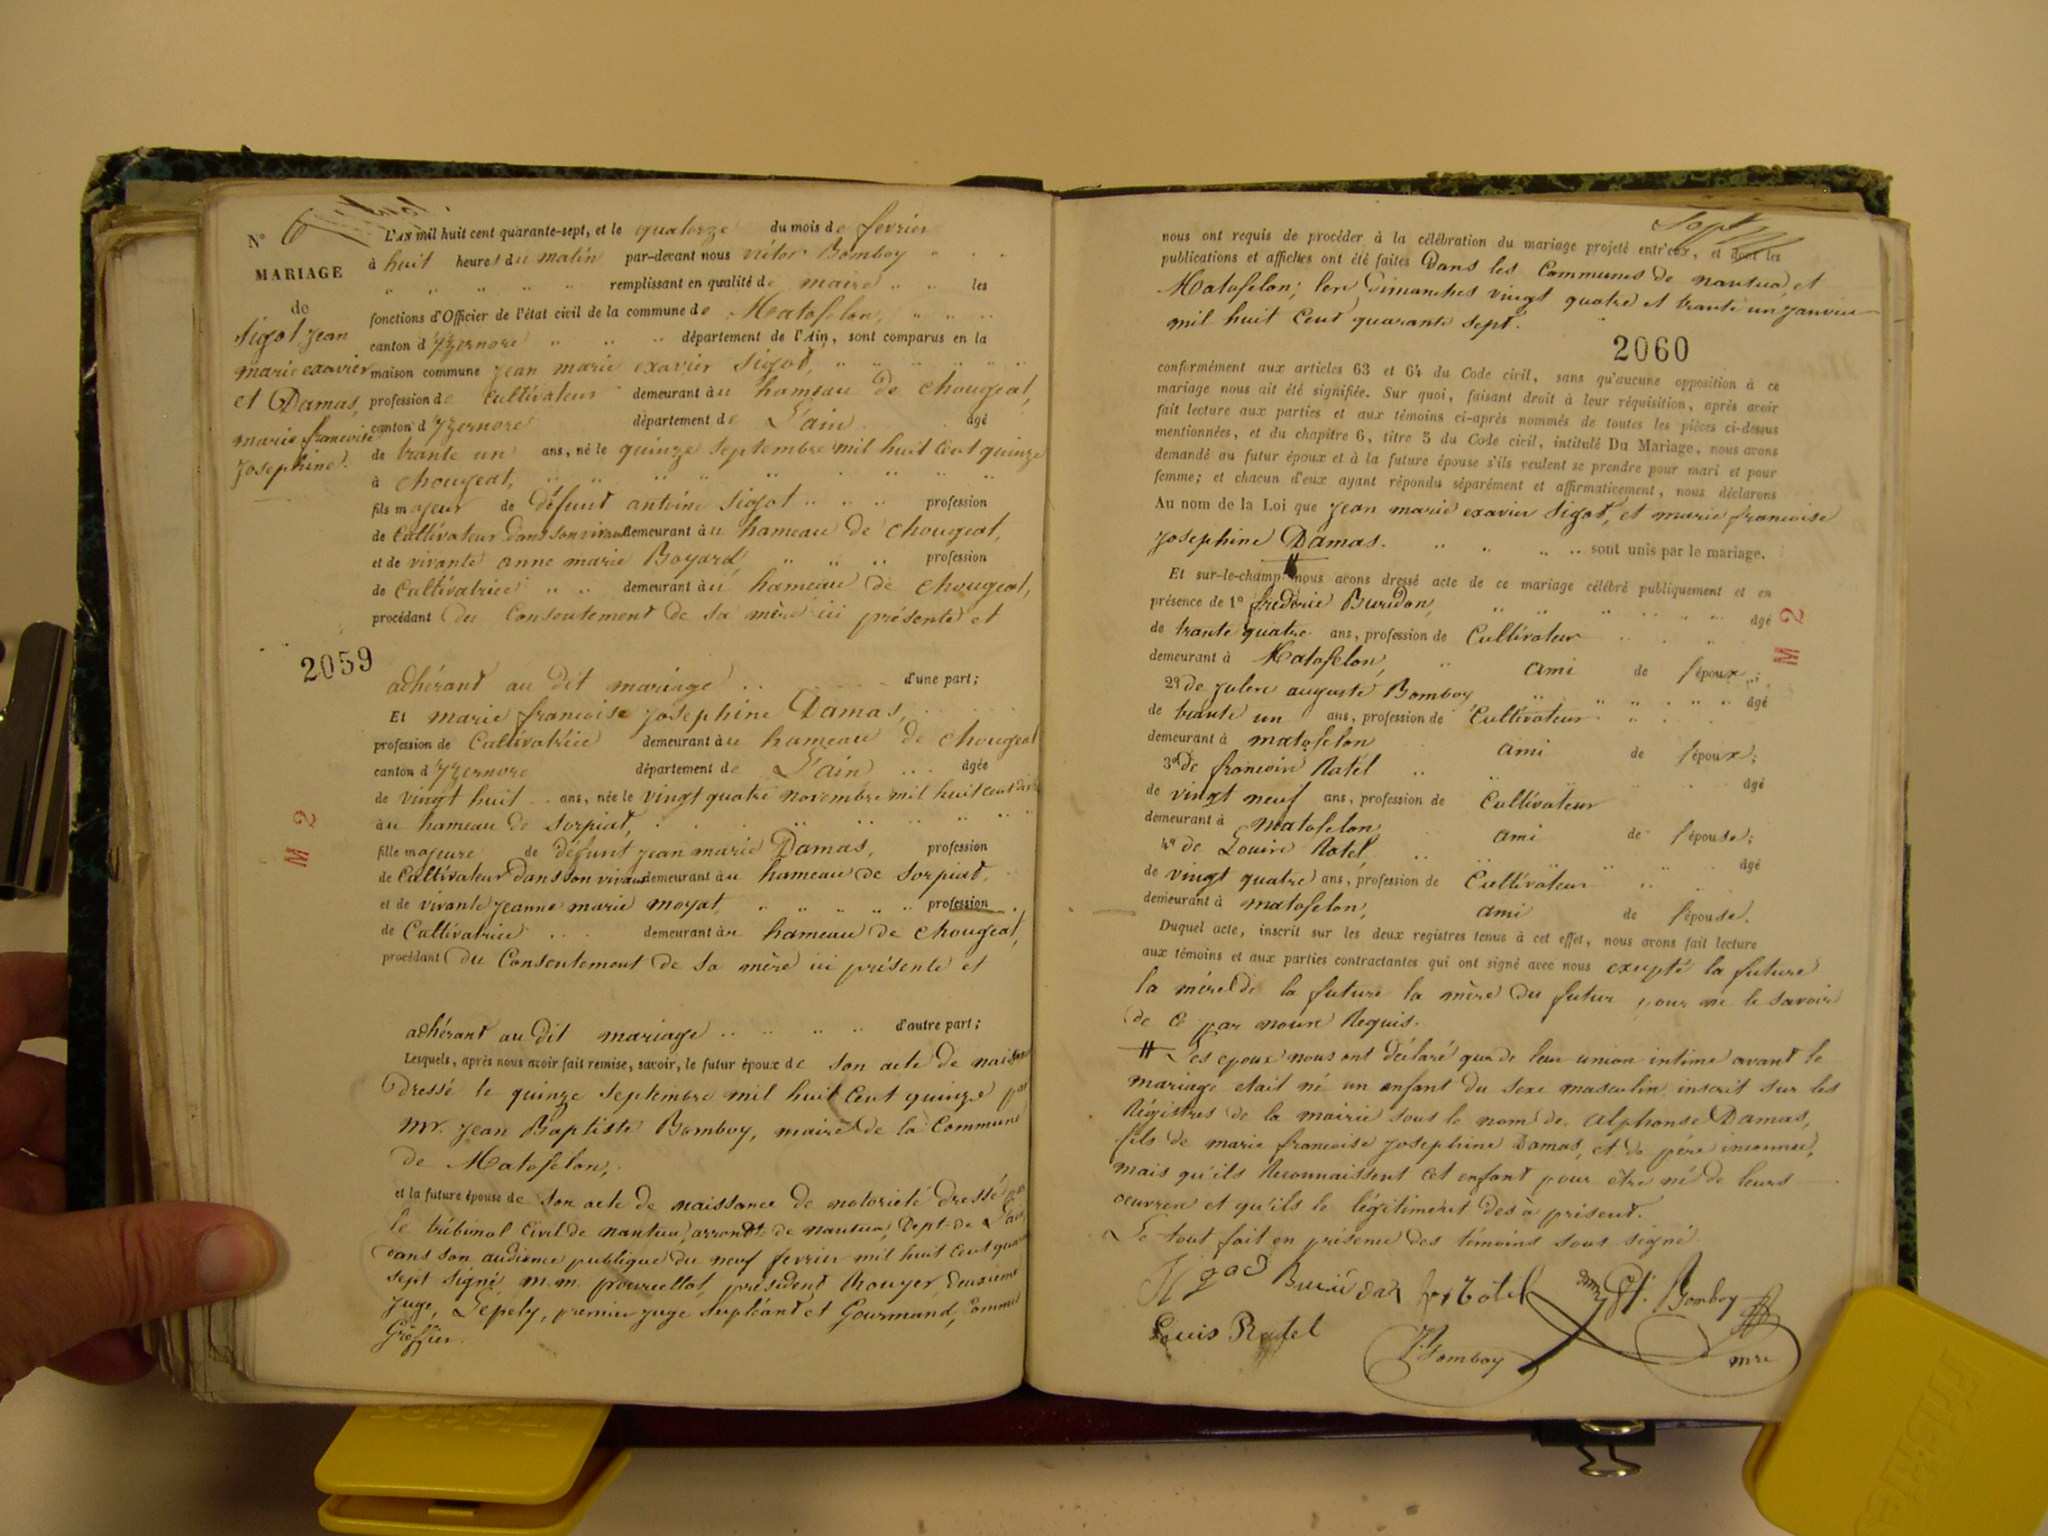 N° 6
MARIAGE
de
Sigot, jean
marie exavier
et Damas,
marie francoise
Josephine.
L'AN mil huit cent quarante-sept, et le quatorze du mois de fevrier
à huit heures du matin par-devant nous victor Bomboy
remplissant en qualité de maire les
fonctions d'Officier de l'état civil de la commune de Matafelon,
canton d'yzernore département de l'Ain, sont comparus en la
maison commune jean marie exavier Sigot,
profession de Cultivateur demeurant au hameau de Chougeat,
canton d'yzernore département de L'ain agé
de trante un ans, né le quinze septembre mil huit cent quinze
à Chougeat,
fils majeur de défunt antoine Sigot profession
de Cultivateur dans son vivant demeurant au hameau de Chougeat,
et de vivante anne marie Boyard, profession
de Cultivatrice demeurant au hameau de Chougeat,
procédant du Consentement de sa mère ici présente et
2059
adhérant au dit mariage d'une part;
Et marie francoise Josephine Damas,
profession de Cultivatrice demeurant au hameau de Chougeat
canton d'yzernore département de L'ain agée
de vingt huit ans, née le vingt quatre novembre mil huit cent
au hameau de Sorpiat,
fille majeure de défunt jean marie Damas, profession
de Cultivateur dans son vivant demeurant au hameau de Sorpiat,
et de vivante jeanne marie moyat, profession
de Cultivatrice demeurant au hameau de Chougeat,
procédant du Consentement de sa mère ici présente et
M 2
adhérant au dit mariage d'autre part;
Lesquels, après nous avoir fait remise, savoir, le futur époux de son acte de naissance
Dressé le quinze septembre mil huit cent quinze par
Mr. Jean Baptiste Bomboy, maire de la Commune
de Matafelon,
et la future épouse de son acte de naissance de notorieté dressé par
le tribunal Civil de nantua, arrondt. de nantua, Dept. de L'ain,
dans son audience publique du neuf fevrier mil huit cent quarante
sept signé, m.m. president Rouyer, deuxieme
juge, Lepely, premier juge supléant et Gourmand, Commis
Greffier.
Sept
nous ont requis de procéder à la célébration du mariage projeté entr'eux, et dont les
publications et affiches ont été faites Dans les Communes de nantua, et
Matafelon; les Dimanches vingt quatre et trante un janvier
mil huit Cent quarante sept.
2060
conformément aux articles 63 et 64 du Code civil, sans qu'aucune opposition à ce
mariage nous ait été signifiée. Sur quoi, faisant droit à leur réquisition, après avoir
fait lecture aux parties et aux témoins ci-après nommés de toutes les pièces ci-dessus
mentionnées, et du chapitre 6, titre 5 du Code civil, intitulé Du Mariage, nous avons
demandé au futur époux et à la future épouse s'ils veulent se prendre pour mari et pour
femme; et chacun d'eux ayant répondu séparément et affirmativement, nous déclarons
Au nom de la Loi que jean marie exavier Sigot, et marie francoise
Josephine Damas. sont unis par le mariage.
Et sur-le-champ nous avons dressé acte de ce mariage célébré publiquement et en
présence de 1° frederic Buridon, agé
de trante quatre ans, profession de Cultivateur
demeurant à Matafelon, ami de l'époux;
2° de Julere auguste Bomboy agé
de trante un ans, profession de Cultivateur
demeurant à matafelon ami de l'époux;
3° de francois Ratel agé
de vingt neuf ans, profession de Cultivateur
demeurant à matafelon ami de l'épouse;
4° de Louis Ratel, agé
de vingt quatre ans, profession de Cultivateur
demeurant à matafelon, ami de l'épouse.
M 2
Duquel acte, inscrit sur les deux registres tenus à cet effet, nous avons fait lecture
aux témoins et aux parties contractantes qui ont signé avec nous exepté la future
la mère de la future la mère du futur pour ne le savoir
de ce par nous Requis.
# Les epoux nous ont déclaré que de leur union intime avant le
mariage etait né un enfant du sexe masculin inscrit sur les
Régistres de la mairie sous le nom de Alphonse Damas,
fils de marie francoise Josephine Damas, et de père inconnu,
mais qu'ils Reconnaissent cet enfant pour être né de leurs
oeuvres et qu'ils le légitiment des à présent.
Le tout fait en présence des témoins sous signé
Bomboy
Louis Ratel
Bomboy
mre